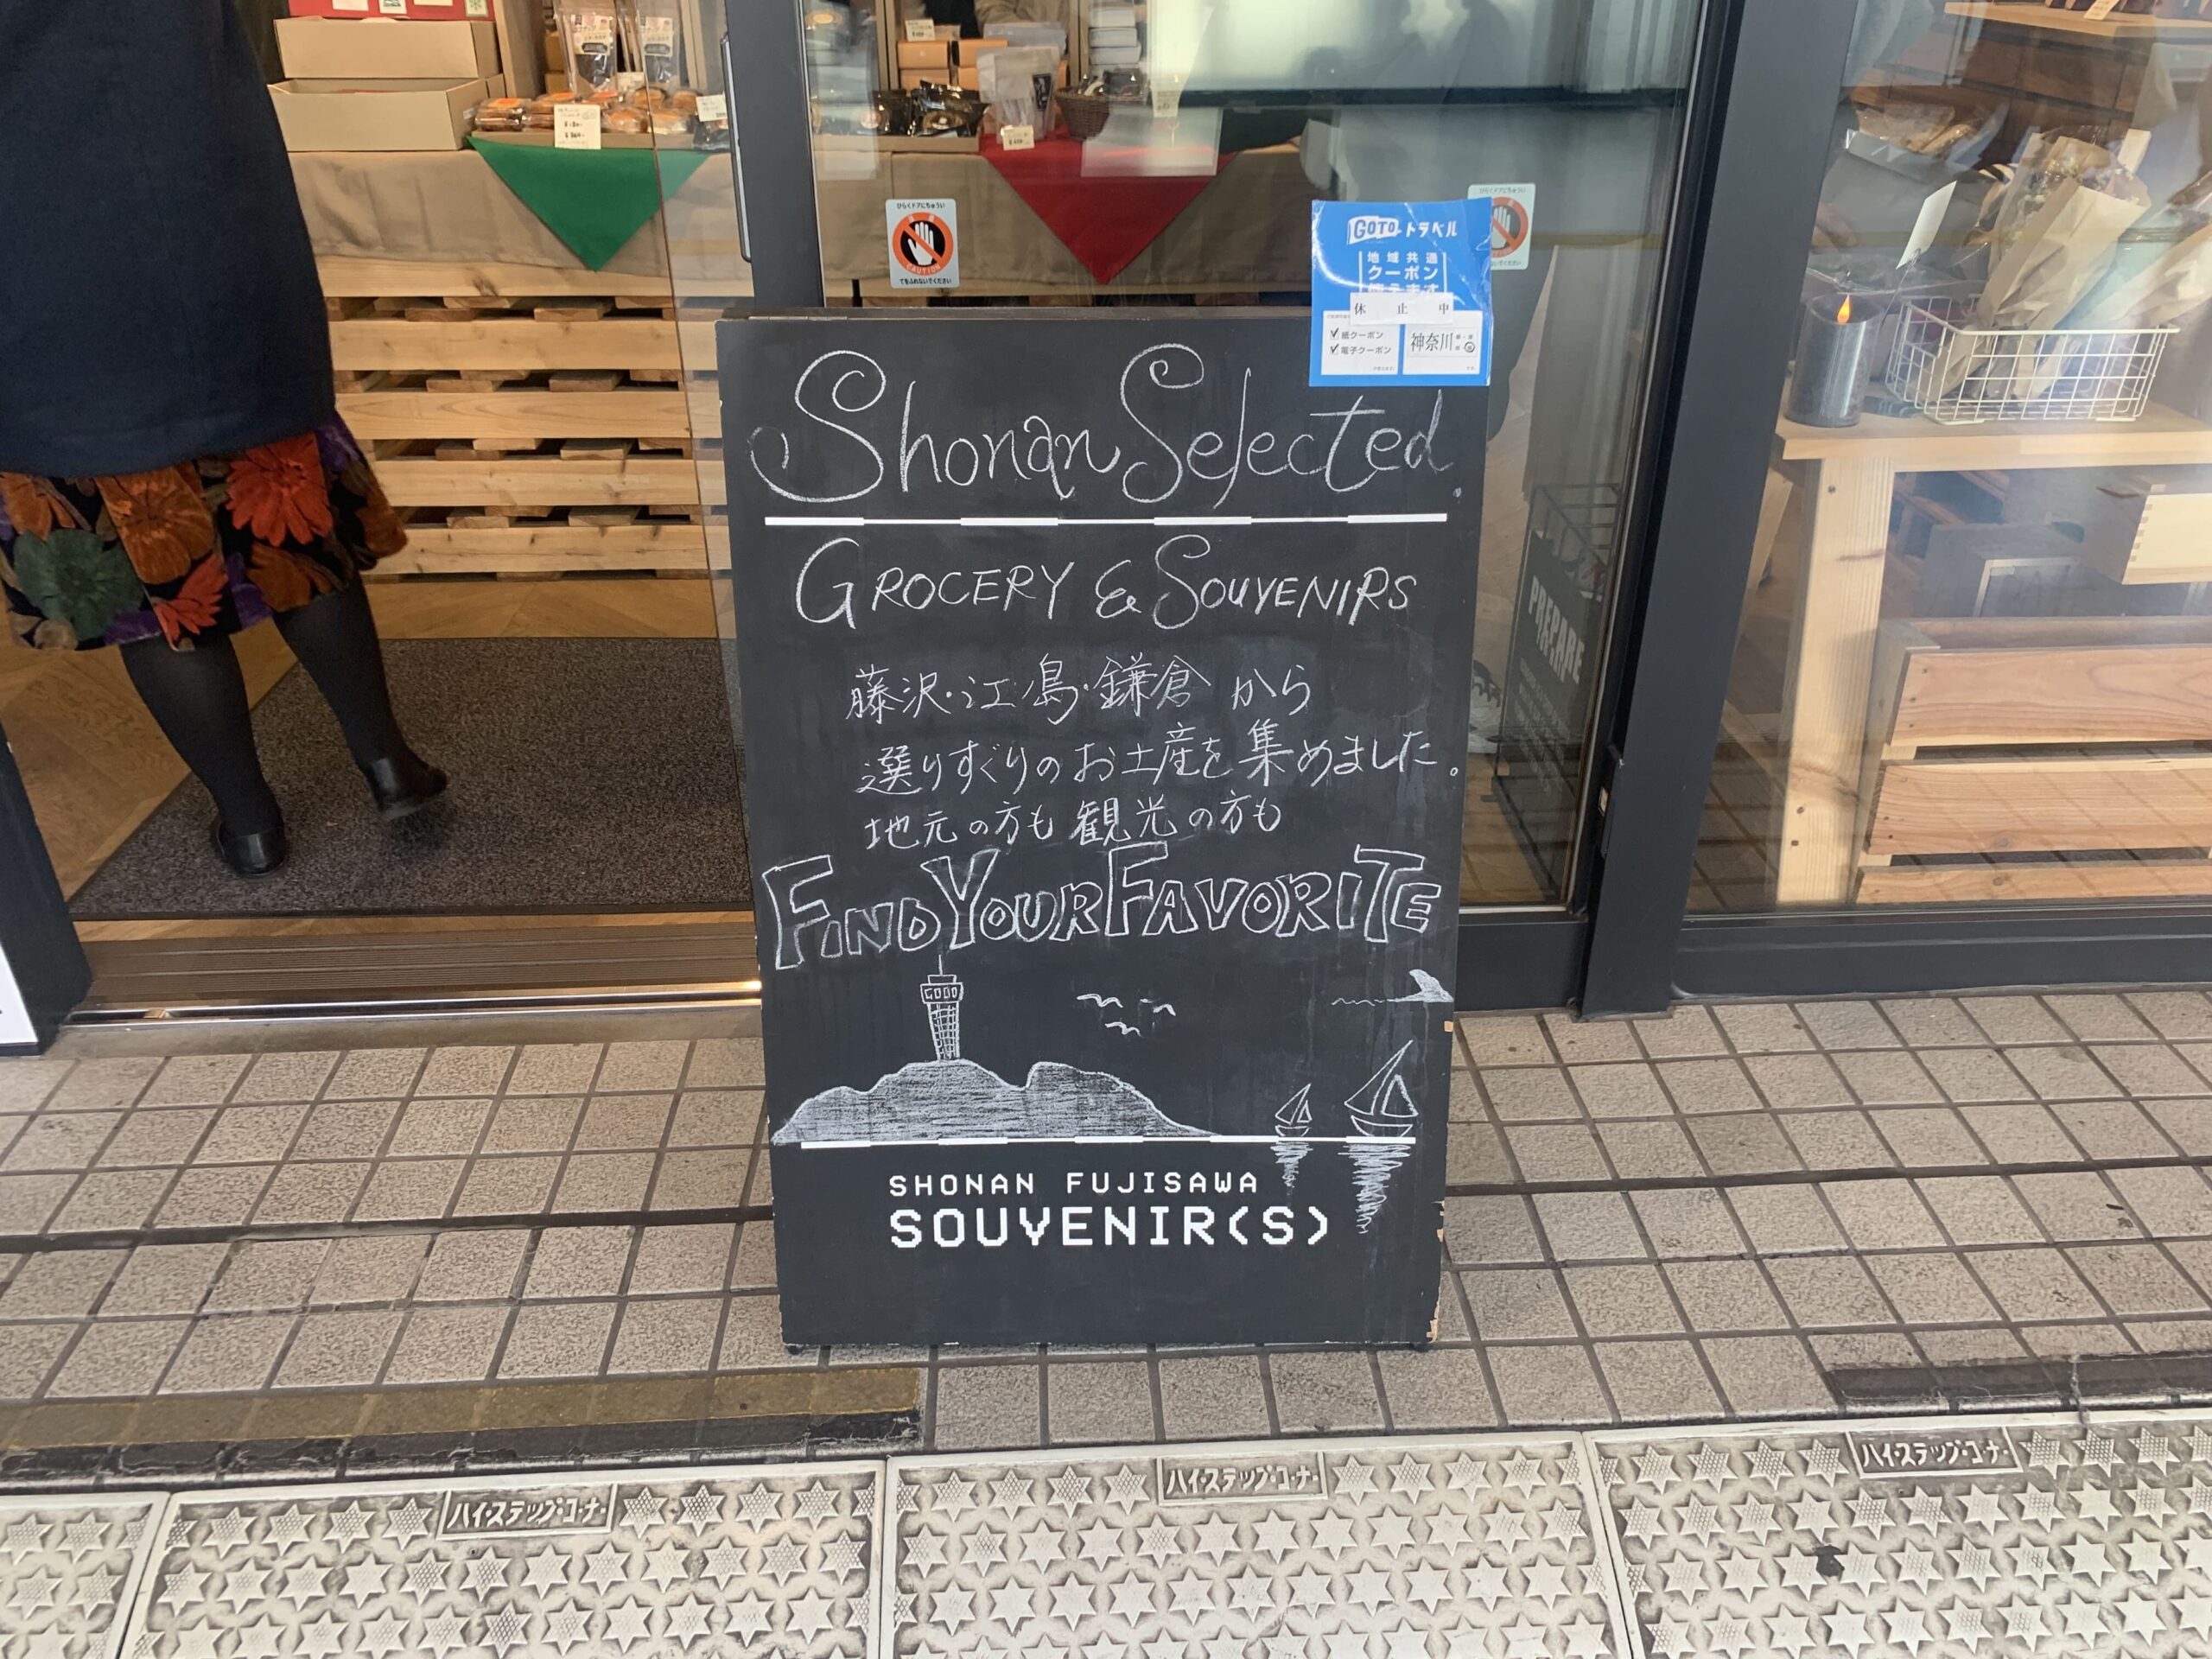 ひらくドアにちゅうい
CAUTION
てをふれないでください
ひらくドアにちゅうい
GOTOトラベル
地域共通
クーポン
使えます
休止中
紙クーポン
電子クーポン
神奈川
Shonan Selected.
GROCERY & SOUVENIRS
藤沢・江ノ島・鎌倉から
選りすぐりのお土産を集めました。
地元の方も観光の方も
FIND YOUR FAVORITE
GOOD
SHONAN FUJISAWA
SOUVENIR(S)
PREPARE
ハイ・ステップ・コーナー
ハイ・ステップ・コーナー
ハイ・ステップ・コーナー